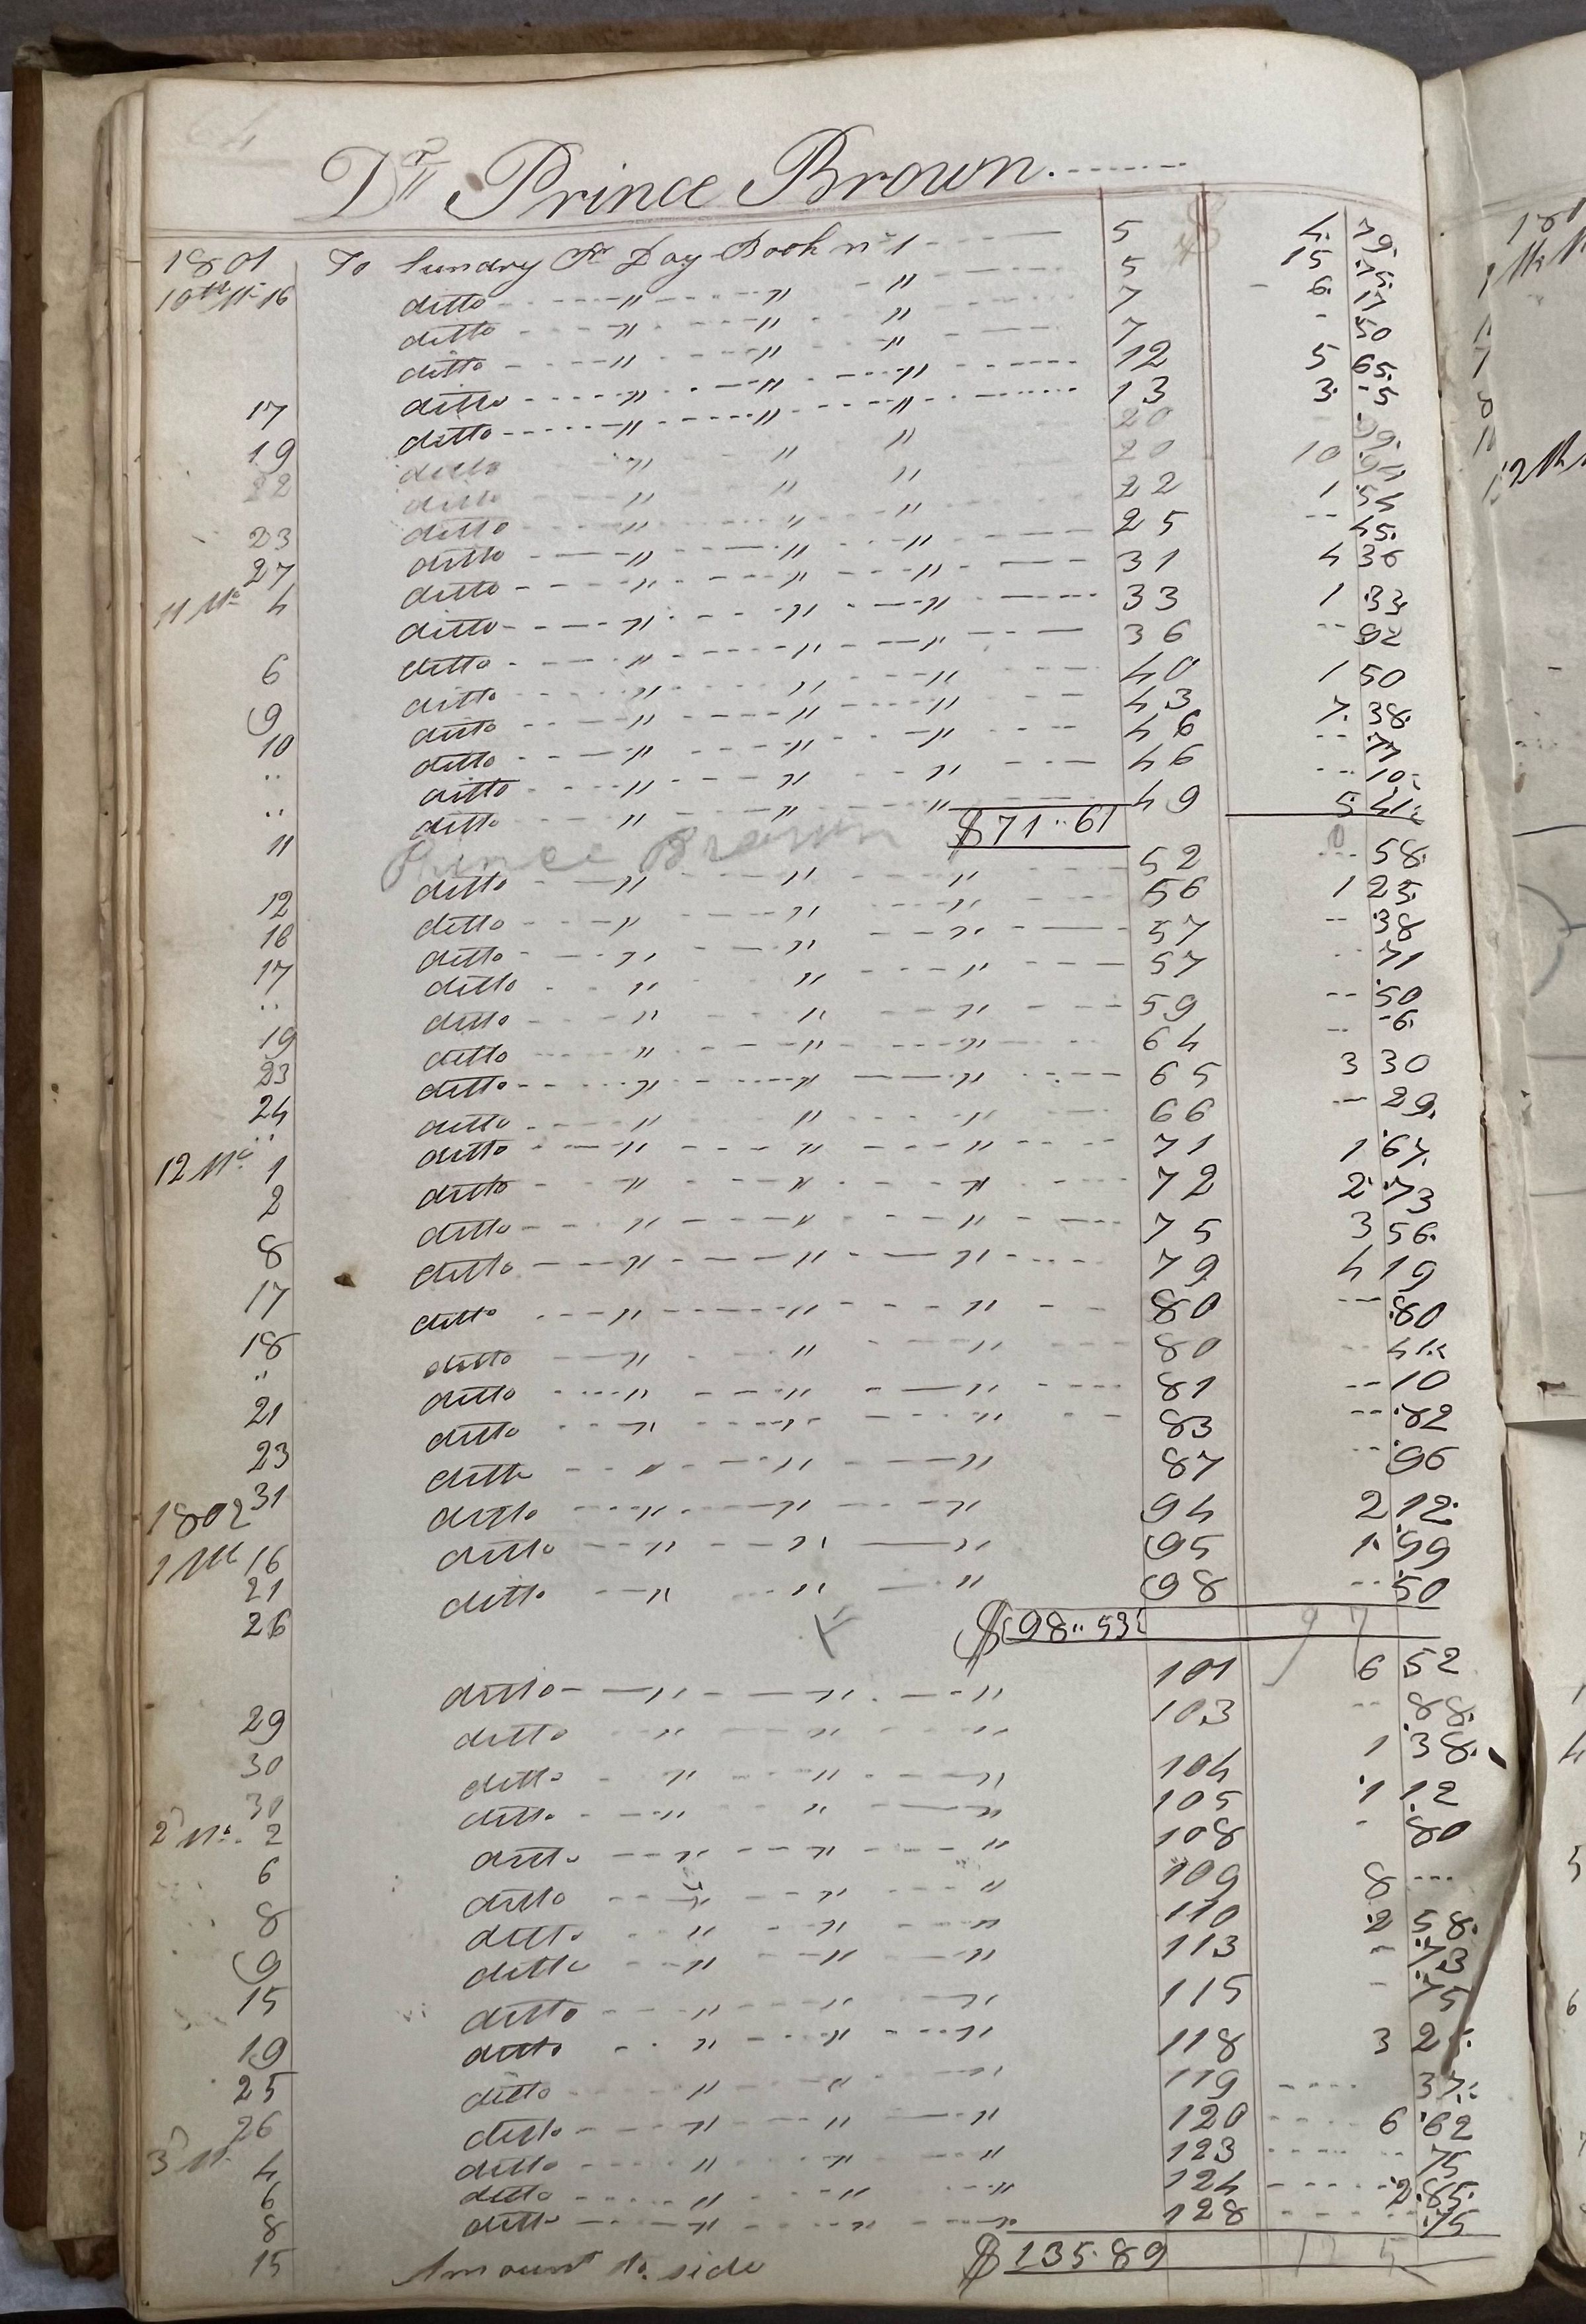 Dr Prince Brown.
1801 To Sundry Pr Day Book no 1 5 4. 79.
10th Mo 16 ditto " " " 5 15 75.
ditto " " " 7 6. 17
ditto " " " 7 - 50
17 ditto " " " 12 5 65.
19 ditto " " " 13 3. - 5
22 ditto " " " 20 99.
ditto " " " 20 10 94
23 ditto " " " 22 1 54
27 ditto " " " 25 -- 45.
11 Mo 4 ditto " " " 31 4 36
ditto " " " 33 1 33
6 ditto " " " 36 -- 92
9 ditto " " " 40 1 50
10 ditto " " " 43 7. 38.
.. ditto " " " 46 -- 77
.. ditto " " " 46 -- 10
11 ditto " " " 49 5 41
Prince Brown $71..61
12 ditto " " " 52 -- 58.
16 ditto " " " 56 1 25.
17 ditto " " " 57 -- 38
.. ditto " " " 57 .. 71
19 ditto " " " 59 -- 50
23 ditto " " " 64 -- -6.
24 ditto " " " 65 3 30
.. ditto " " " 66 -- 29.
12 Mo 1 ditto " " " 71 1 67.
2 ditto " " " 72 2 73
8 ditto " " " 75 3 56.
17 ditto " " " 79 4 19
18 ditto " " " 80 -- 80
.. ditto " " " 80 -- 41
21 ditto " " " 81 -- 10
23 ditto " " " 83 -- 82
31 ditto " " " 87 -- 96
1802
1 Mo 16 ditto " " " 94 2 12.
21 ditto " " " 95 1. 99
26 ditto " " " 98 -- 50
$98..53
29 ditto " " " 101 6 52
30 ditto " " " 103 -- 88.
30 ditto " " " 104 1 38.
2 Mo. 2 ditto " " " 105 1 12
6 ditto " " " 108 - 80
8 ditto " " " 109 8 ---
9 ditto " " " 110 2 58.
15 ditto " " " 113 - 73
19 ditto " " " 115 - 75
25 ditto " " " 118 3 2
26 ditto " " " 119 ---- 37.
3 Mo 4 ditto " " " 120 ---- 6 62
6 ditto " " " 123 ---- 75
8 ditto " " " 124 ---- 2.85.
15 ditto " " " 128 ---- 75
Amount to. side $135.89